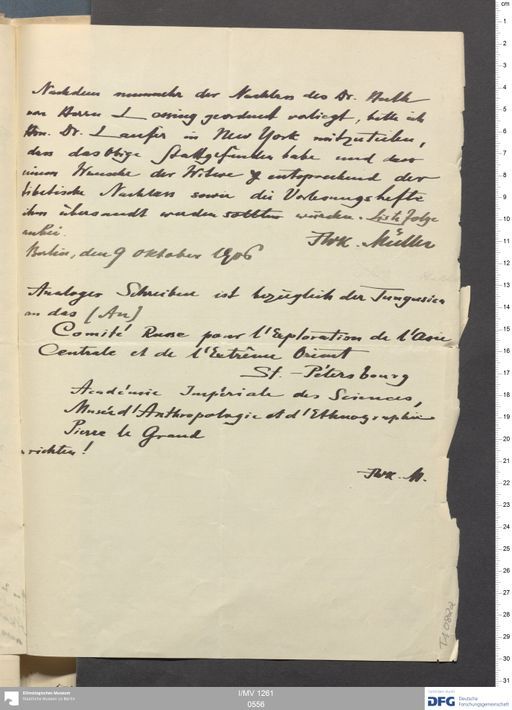 Nachdem nunmehr der Nachlass des Dr. Huth
von Herrn Lessing geordnet vorliegt, bitte ich
Hrn. Dr. Laufer in New York mitzuteilen,
dass das obige stattgefunden habe und dass
einem Wunsche der Witwe entsprechend der
tibetische Nachlass sowie die Vorlesungshefte
ihm übersandt werden sollten würden. Liste folge
anbei.
FWK. Müller
Berlin, den 9 Oktober 1906
Analoges Schreiben ist bezüglich der Tungusica
an das [An]
Comité Russe pour l'Exploration de l'Asie
Centrale et de l'Extrême Orient
St.-Pétersbourg
Académie Impériale des Sciences,
Musée d'Anthropologie et d'Ethnographie
Pierre le Grand
richten!
FWK. M.
I/MV 1261
0556
Ethnologisches Museum
Staatliche Museen zu Berlin
DFG Deutsche
Forschungsgemeinschaft
cm
1
2
3
4
5
6
7
8
9
10
11
12
13
14
15
16
17
18
19
20
21
22
23
24
25
26
27
28
29
30
31